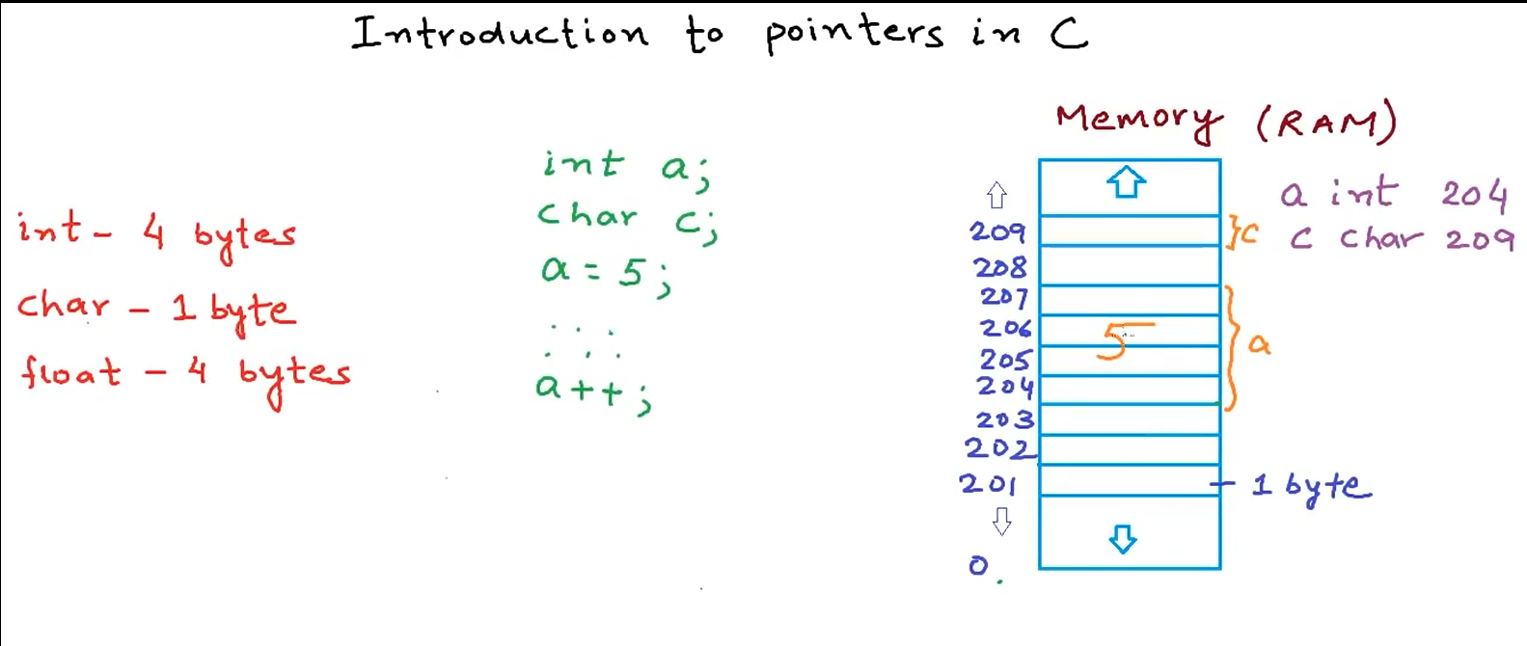 Introduction to pointers in C
int - 4 bytes
char - 1 byte
float - 4 bytes
int a;
char c;
a = 5;
...
...
a++;
Memory (RAM)
209
208
207
206
205
204
203
202
201
0
5
}c
}a
- 1 byte
a int 204
c char 209